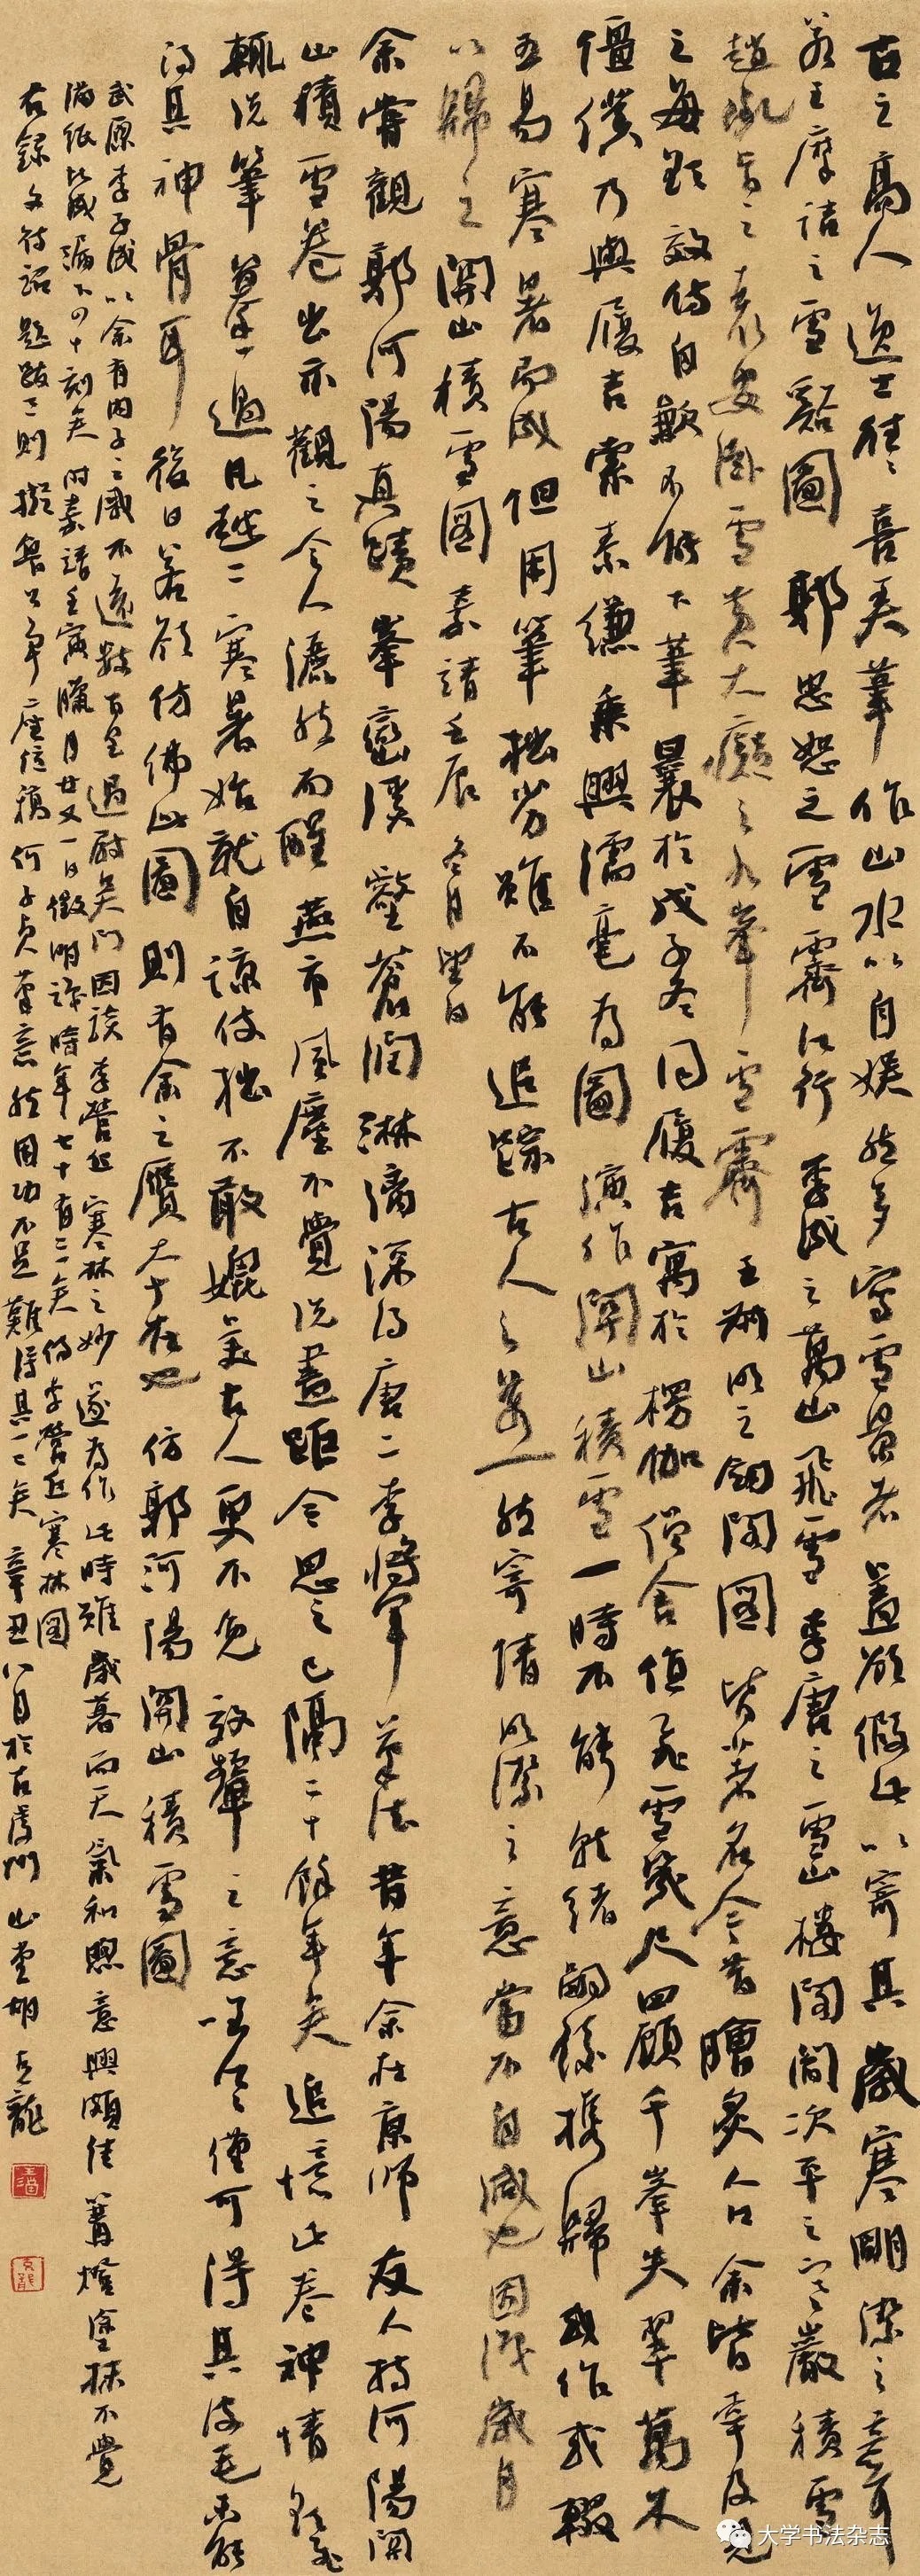 古之高人逸士往往喜弄筆作山水以自娛然多寫雪景者蓋欲假此以寄其歲寒明潔之意耳
若王摩詰之雪谿圖郭忠恕之雪霽江行李成之萬山飛雪李唐之雪山樓閣閻次平之寒巖積雪
趙承旨之袁安臥雪黃大癡之九峯雪霽王叔明之劍閣圖皆著名今昔膾炙人口余皆幸及見
之每欲效倣自歉不能下筆曩於戊子冬同履吉寓於楞伽僧舍值飛雪幾尺四顧千峯失翠萬木
僵僕乃與履吉索素縑乘興濡毫為圖演作關山積雪一時不能就緒嗣後攜歸或作或輟
五易寒暑而成但用筆拙劣雖不能追踪古人之萬一然寄情明潔之意當不自減也因識歲月
以歸之關山積雪圖嘉靖壬辰冬月望日
余嘗觀郭河陽真蹟峯巒溪壑蒼潤淋漓深得唐二李將軍筆法昔年余在京師友人持河陽關
山積雪卷出示觀之令人灑然而醒燕市風塵不覺洗盡距今思之已隔二十餘年矣追憶此卷神情欲飛
輒洗筆摹一過凡越二寒暑始就自諒伎拙不敢媲美古人更不免效顰之意唯此僅可得其皮毛不能
得其神骨耳後日若欲仿佛此圖則有余之贋大才在也仿郭河陽關山積雪圖
武原李子成以余有內子之戚不遠數百里過慰吳門因談李營丘寒林之妙遂為作此時雖歲暮而天氣和煦意興頗佳篝燈塗抹不覺
滿紙比成漏下四十刻矣時嘉靖壬寅臘月廿又一日徵明識時年七十有三矣倣李營丘寒林圖
右錄文待詔題跋三則擬魯公爭座位稿何子貞筆意然用功不足難得其一二矣辛丑八月於古虞州山堂胡克龍
大学书法杂志